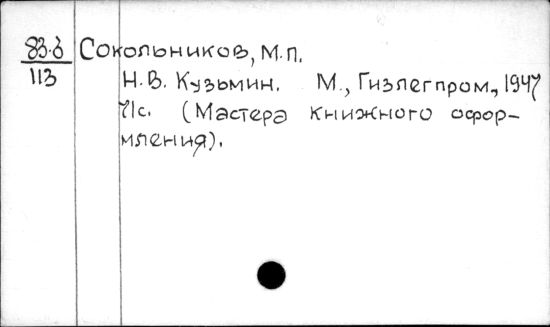 83.б Сокольников, М.П.
113 Н.В. Кузьмин. М., Гизлегпром, 1947
71с. (Мастера книжного офор-
мления).